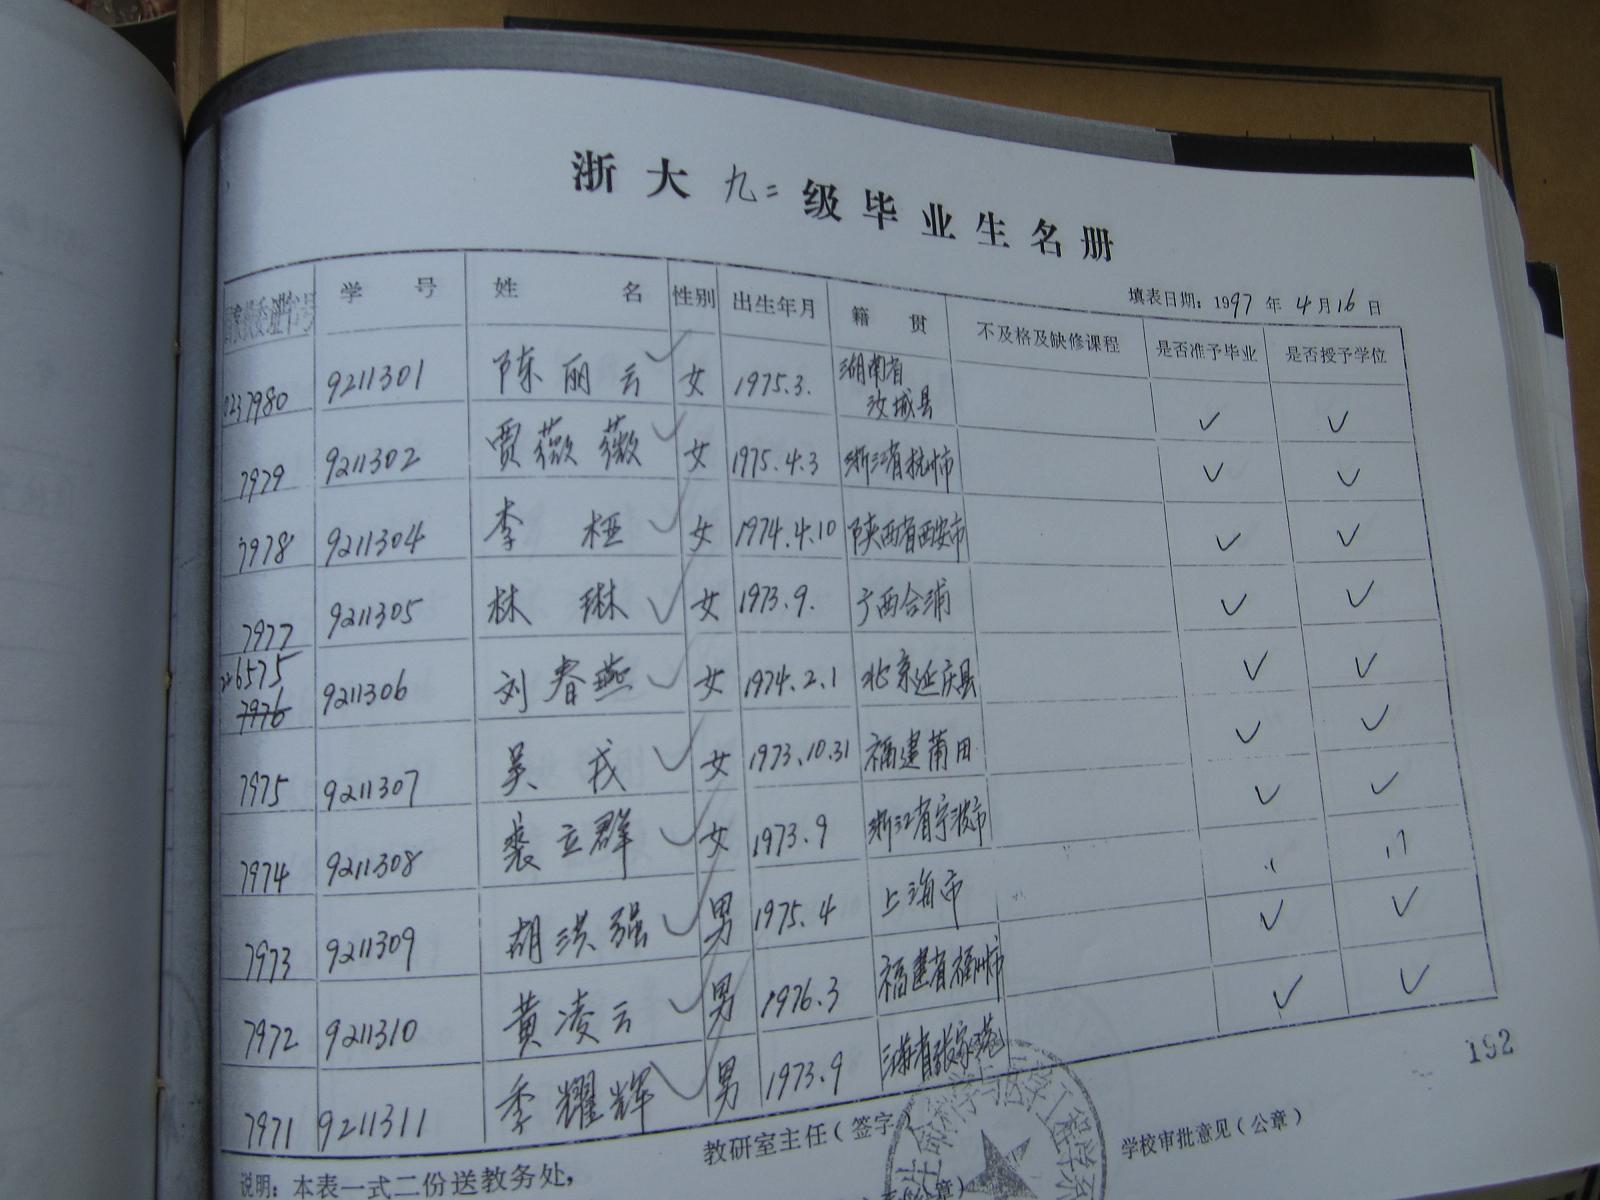 浙大九二级毕业生名册
填表日期：1997年4月16日
学号 姓名 性别 出生年月 籍贯 不及格及缺修课程 是否准予毕业 是否授予学位
0237980 9211301 陈丽云 女 1975.3. 湖南省汝城县 ✓ ✓
7979 9211302 贾薇薇 女 1975.4.3 浙江省杭州市 ✓ ✓
7978 9211304 李桠 女 1974.4.10 陕西省西安市 ✓ ✓
7977 9211305 林琳 女 1973.9. 广西合浦 ✓ ✓
6575
7976 9211306 刘春燕 女 1974.2.1 北京延庆县 ✓ ✓
7975 9211307 吴戎 女 1973.10.31 福建莆田 ✓ ✓
7974 9211308 裘立群 女 1973.9 浙江省宁波市 ✓ ✓
7973 9211309 胡洪强 男 1975.4 上海市
7972 9211310 黄凌云 男 1976.3 福建省福州市 ✓ ✓
7971 9211311 季耀辉 男 1973.9 ✓ ✓
192
教研室主任（签字
学校审批意见（公章）
说明：本表一式二份送教务处，